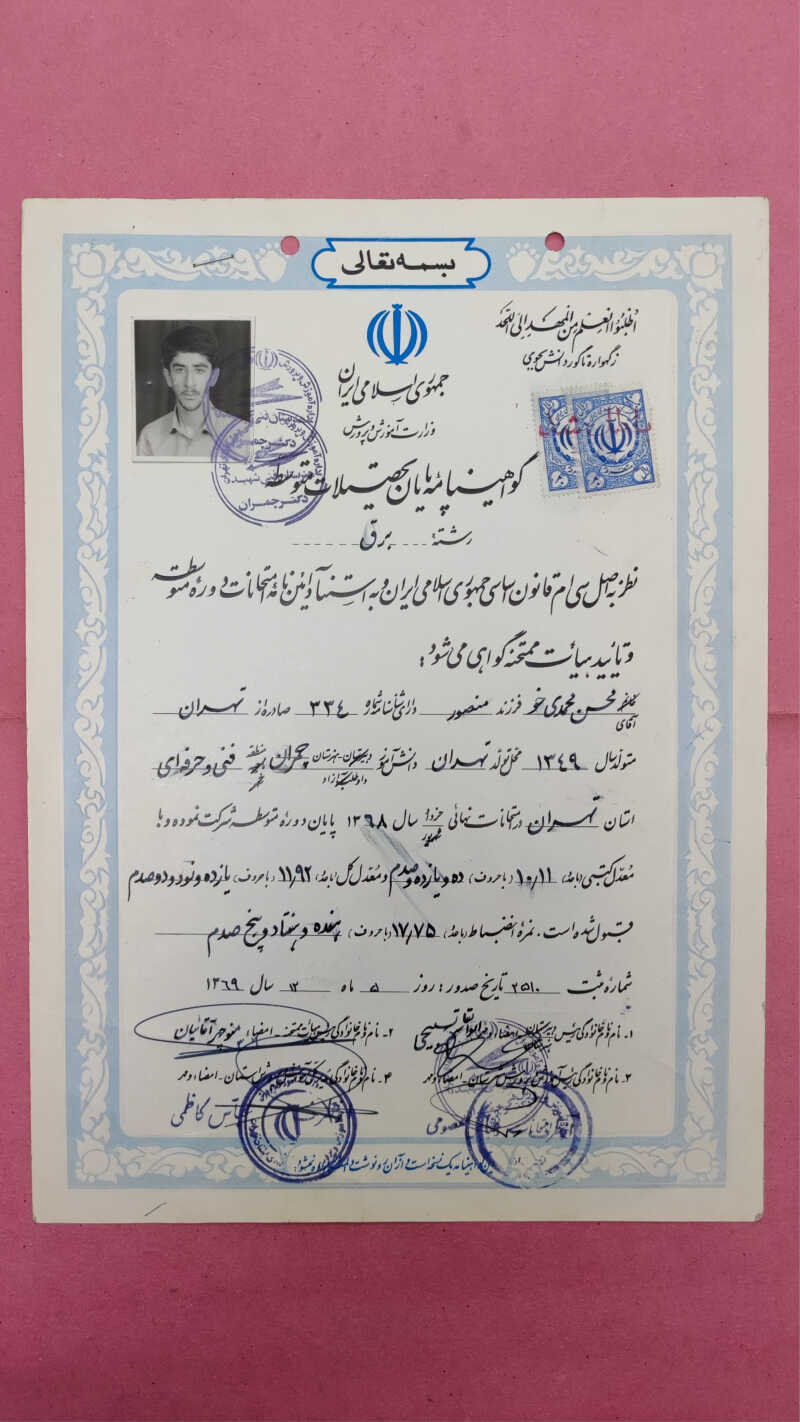 بسمه تعالی
اطلبوا العلم من المهد الی اللحد
زگهواره تا گور دانش بجوی
جمهوری اسلامی ایران
وزارت آموزش و پرورش
گواهینامه پایان تحصیلات متوسطه
رشته برق
نظر به اصل سی ام قانون اساسی جمهوری اسلامی ایران و به استناد آئین نامه امتحانات دوره متوسطه
و تایید هیات ممتحنه گواهی می شود:
آقای محسن محمدی خو فرزند منصور دارای شناسنامه شماره ۳۳۴ صادره از تهران
متولد سال ۱۳۴۹ محل تولد تهران دانش آموز دبیرستان - هنرستان چمران منطقه فنی و حرفه ای
استان تهران در امتحانات نهائی خرداد شهریور سال ۱۳۶۸ پایان دوره متوسطه شرکت نموده و با
معدل کتبی (با عدد) ۱۰/۱۱ (با حروف) ده و یازده صدم و معدل کل (با عدد) ۱۱/۹۲ (با حروف) یازده و نود و دو صدم
قبول شده است. نمره انضباط (با عدد) ۱۷/۷۵ (با حروف) هفده و هفتاد و پنج صدم
شماره ثبت ۲۵۱۰ تاریخ صدور: روز ۵ ماه ۳ سال ۱۳۶۹
۱- نام و نام خانوادگی رئیس دبیرستان - امضاء و مهر
۲- نام و نام خانوادگی رئیس هیات ممتحنه - امضاء منوچهر آقائیان
۳- نام و نام خانوادگی رئیس آموزش و پرورش شهرستان - امضاء و مهر
۴- نام و نام خانوادگی مدیر کل آموزش و پرورش استان - امضاء و مهر
کاظمی
دکتر چمران